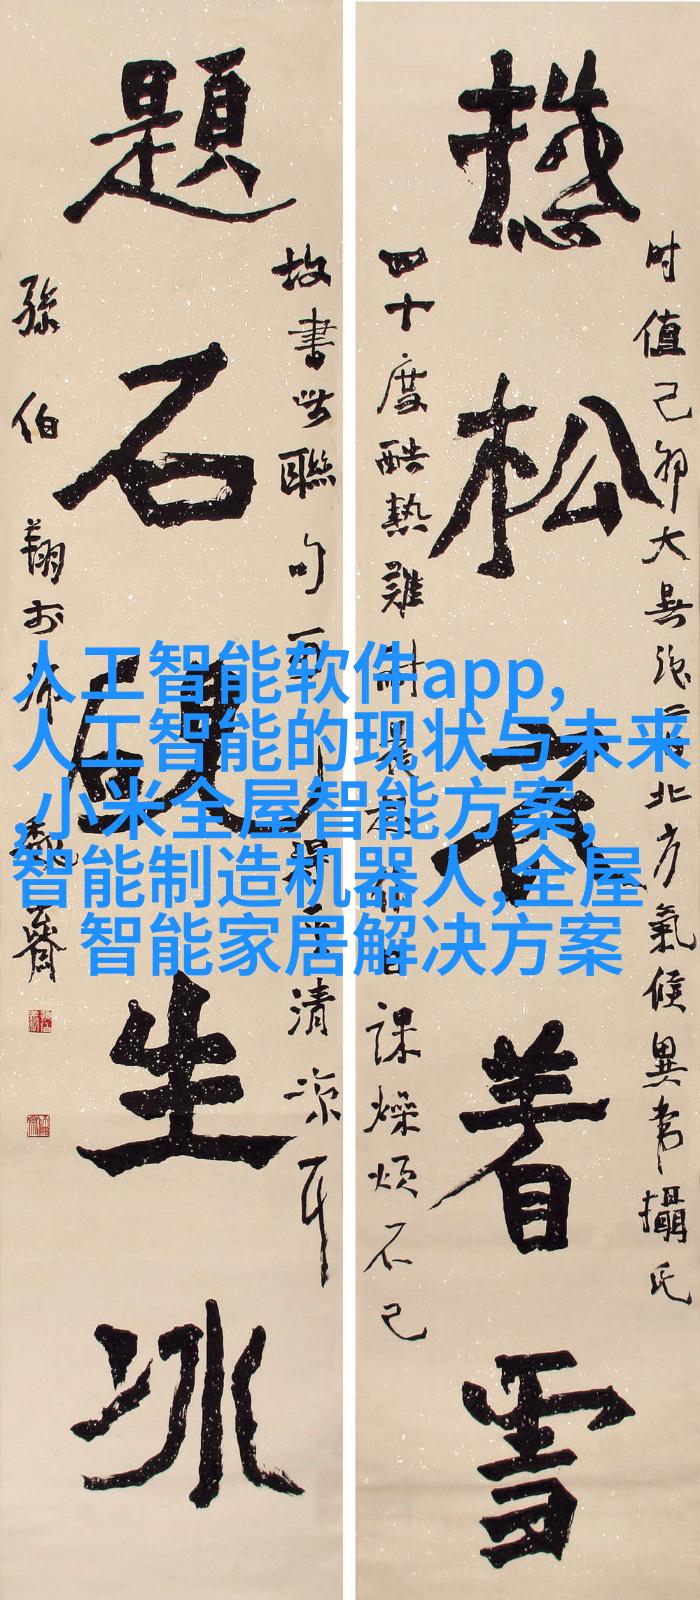 时值己卯大暑後二日北方氣候異常攝氏
松衣着雪
四十度酷熱難耐課燥煩不已
故書此聯句清凉耳
題石硯生冰
孫伯翔於齋
人工智能软件app,
人工智能的现状与未来
,小米全屋智能方案,
智能制造机器人,全屋
智能家居解决方案